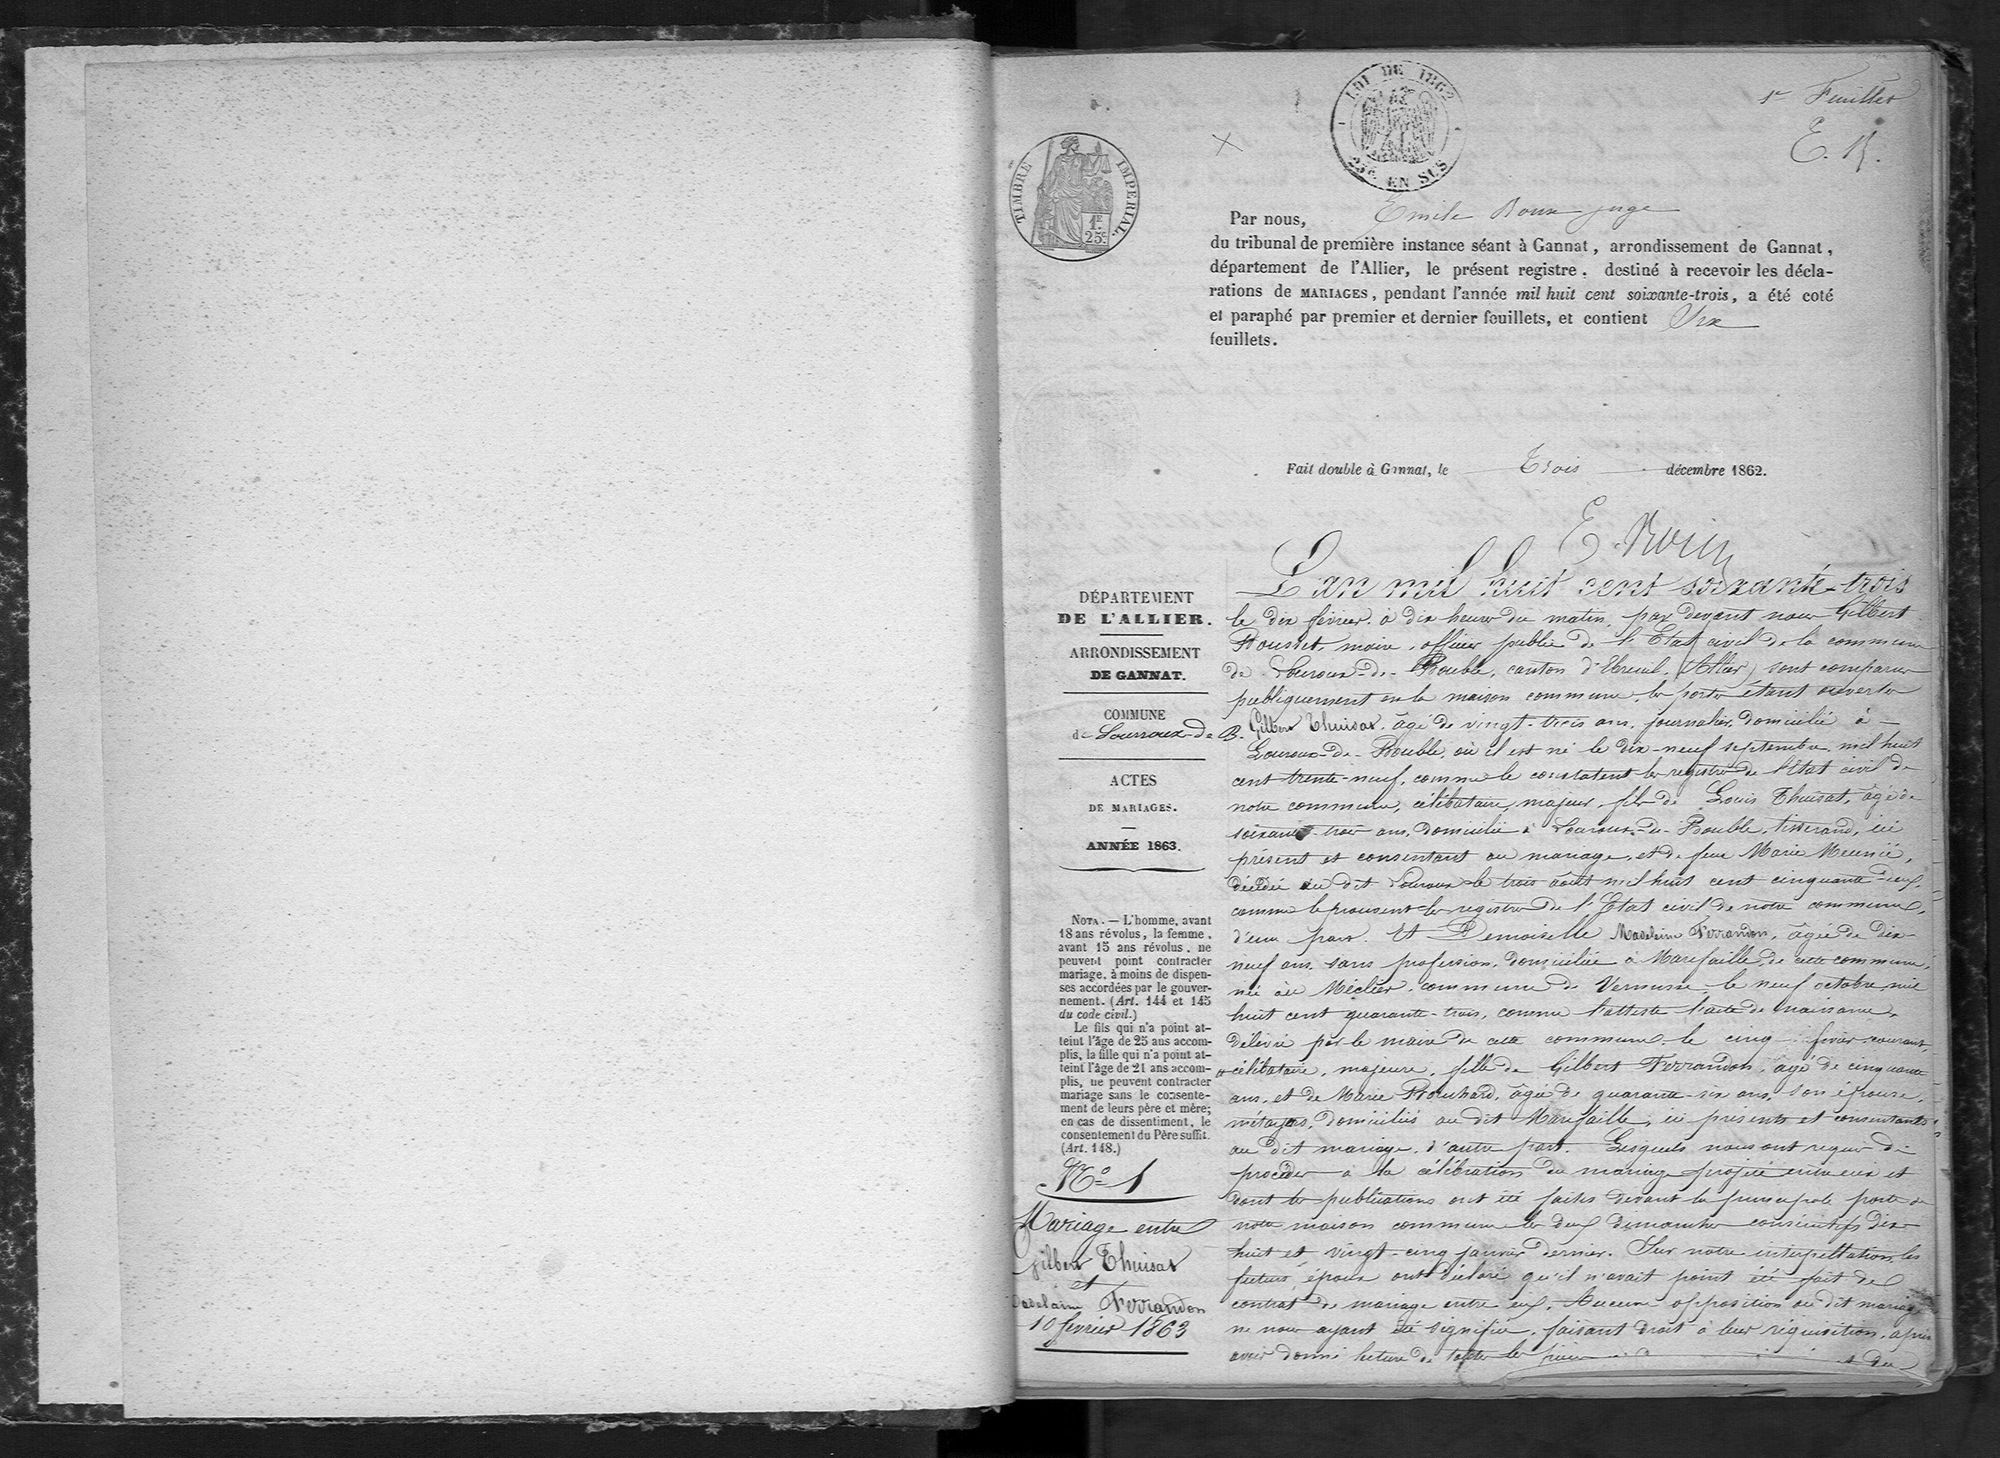 1er Feuillet
E. R.
LOI DE 1862
25c. EN SUS
TIMBRE IMPERIAL.
1F
25c
Par nous, Emile Roux juge
du tribunal de première instance séant à Gannat, arrondissement de Gannat,
département de l'Allier, le présent registre, destiné à recevoir les décla-
rations de MARIAGES, pendant l'année mil huit cent soixante-trois, a été coté
et paraphé par premier et dernier feuillets, et contient Six
feuillets.
Fait double à Gannat, le Trois décembre 1862.
E. Roux
DÉPARTEMENT
DE L'ALLIER.
ARRONDISSEMENT
DE GANNAT.
COMMUNE
de Louroux-de B.
ACTES
DE MARIAGES.
ANNÉE 1863.
NOTA. — L'homme, avant
18 ans révolus, la femme,
avant 15 ans révolus, ne
peuvent point contracter
mariage, à moins de dispen-
ses accordées par le gouver-
nement. (Art. 144 et 145
du code civil.)
Le fils qui n'a point at-
teint l'âge de 25 ans accom-
plis, la fille qui n'a point at-
teint l'âge de 21 ans accom-
plis, ne peuvent contracter
mariage sans le consente-
ment de leurs père et mère;
en cas de dissentiment, le
consentement du Père suffit.
(Art. 148.)
No 1
Mariage entre
Gilbert Thuisat
et
Madelaine Ferrandon
10 février 1863
L'an mil huit cent soixante-trois
le dix février à dix heures du matin, par devant nous Gilbert
Rousset, maire, officier public de l'Etat civil de la commune
de Louroux-de-Bouble, canton d'Ebreuil, (Allier) sont comparus
publiquement en la maison commune, les portes étant ouvertes
Gilbert Thuisat, âgé de vingt-trois ans, journalier, domicilié à
Louroux-de-Bouble, où il est né le dix-neuf septembre mil huit
cent trente-neuf, comme le constatent les registres de l'Etat civil de
notre commune, célibataire, majeur, fils de Louis Thuisat, âgé de
soixante-trois ans, domicilié à Louroux-de-Bouble, tisserand, ici
présent et consentant au mariage, et de feue Marie Meunié,
décédée au dit Louroux le trois août mil huit cent cinquante-deux,
comme le prouvent les registres de l'Etat civil de notre commune,
d'une part. Et Demoiselle Madelaine Ferrandon, âgée de dix-
neuf ans, sans profession, domiciliée à Marefaille, de cette commune,
née au Méclier, commune de Vernusse, le neuf octobre mil
huit cent quarante-trois, comme l'atteste l'acte de naissance,
délivré par le maire de cette commune le cinq février courant,
célibataire, majeure, fille de Gilbert Ferrandon, âgé de cinquante
ans, et de Marie Bouchard, âgée de quarante-six ans, son épouse,
métayers, domiciliés au dit Marefaille, ici présents et consentants
au dit mariage, d'autre part. Lesquels nous ont requis de
procéder à la célébration du mariage projeté entre eux et
dont les publications ont été faites devant la principale porte de
notre maison commune les deux dimanches consécutifs dix-
huit et vingt-cinq janvier dernier. Sur notre interpellation, les
futurs époux ont déclaré qu'il n'avait point été fait de
contrat de mariage entre eux. Aucune opposition au dit mariage
ne nous ayant été signifiée, faisant droit à leur réquisition, après
avoir donné lecture de toutes les pièces et du